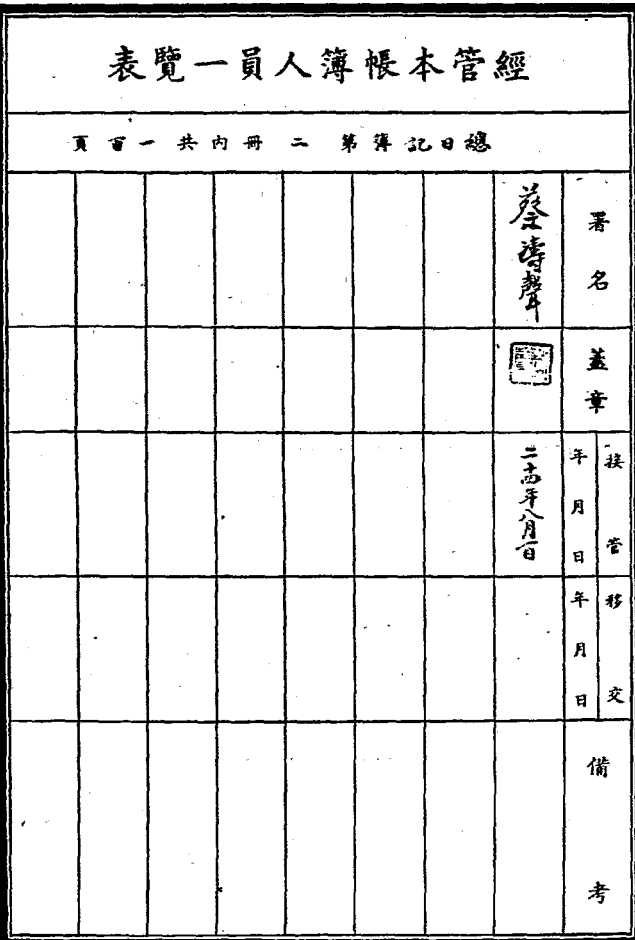 經管本帳簿人員一覽表
總日記簿第二冊內共一百頁
署名
蔡濤聲
蓋章
接管
年月日
二十四年八月一日
移交
年月日
備考